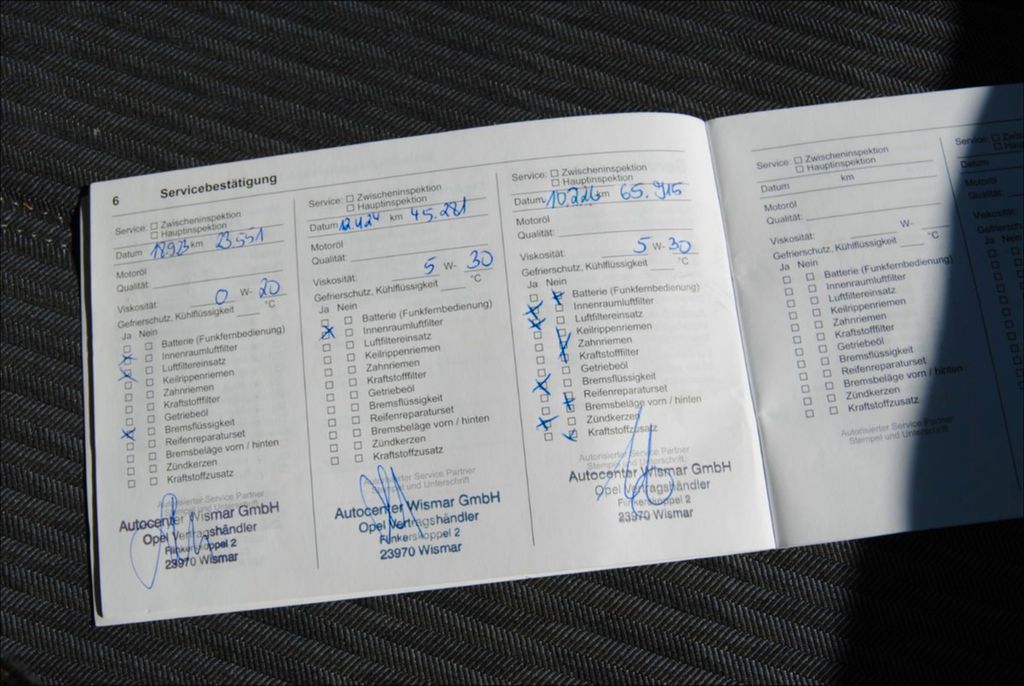 6 Servicebestätigung
Service: □ Zwischeninspektion
□ Hauptinspektion
Datum km 23.551
Motoröl
Qualität:
Viskosität: 0 W- 20
Gefrierschutz, Kühlflüssigkeit °C
Ja Nein
□ □ Batterie (Funkfernbedienung)
☒ □ Innenraumluftfilter
☒ □ Luftfiltereinsatz
□ □ Keilrippenriemen
□ □ Zahnriemen
□ □ Kraftstofffilter
□ □ Getriebeöl
☒ □ Bremsflüssigkeit
□ □ Reifenreparaturset
□ □ Bremsbeläge vorn / hinten
□ □ Zündkerzen
□ □ Kraftstoffzusatz
Autorisierter Service Partner
Stempel und Unterschrift
Autocenter Wismar GmbH
Opel Vertragshändler
Flinkerskoppel 2
23970 Wismar
Service: □ Zwischeninspektion
□ Hauptinspektion
Datum 12.4.24 km 45.281
Motoröl
Qualität:
Viskosität: 5 W- 30
Gefrierschutz, Kühlflüssigkeit °C
Ja Nein
□ □ Batterie (Funkfernbedienung)
☒ □ Innenraumluftfilter
□ □ Luftfiltereinsatz
□ □ Keilrippenriemen
□ □ Zahnriemen
□ □ Kraftstofffilter
□ □ Getriebeöl
□ □ Bremsflüssigkeit
□ □ Reifenreparaturset
□ □ Bremsbeläge vorn / hinten
□ □ Zündkerzen
□ □ Kraftstoffzusatz
Autorisierter Service Partner
Stempel und Unterschrift
Autocenter Wismar GmbH
Opel Vertragshändler
Flinkerskoppel 2
23970 Wismar
Service: □ Zwischeninspektion
□ Hauptinspektion
Datum km 65.915
Motoröl
Qualität:
Viskosität: 5 W- 30
Gefrierschutz, Kühlflüssigkeit °C
Ja Nein
□ ☒ Batterie (Funkfernbedienung)
☒ □ Innenraumluftfilter
☒ □ Luftfiltereinsatz
□ ☒ Keilrippenriemen
□ ☒ Zahnriemen
□ ☒ Kraftstofffilter
□ □ Getriebeöl
☒ □ Bremsflüssigkeit
□ □ Reifenreparaturset
□ ☒ Bremsbeläge vorn / hinten
☒ □ Zündkerzen
□ ☒ Kraftstoffzusatz
Autorisierter Service Partner
Stempel und Unterschrift
Autocenter Wismar GmbH
Opel Vertragshändler
Flinkerskoppel 2
23970 Wismar
Service: □ Zwischeninspektion
□ Hauptinspektion
Datum km
Motoröl
Qualität:
Viskosität: W-
Gefrierschutz, Kühlflüssigkeit °C
Ja Nein
□ □ Batterie (Funkfernbedienung)
□ □ Innenraumluftfilter
□ □ Luftfiltereinsatz
□ □ Keilrippenriemen
□ □ Zahnriemen
□ □ Kraftstofffilter
□ □ Getriebeöl
□ □ Bremsflüssigkeit
□ □ Reifenreparaturset
□ □ Bremsbeläge vorn / hinten
□ □ Zündkerzen
□ □ Kraftstoffzusatz
Autorisierter Service Partner
Stempel und Unterschrift
Service:
Datum
Motoröl
Qualität:
Viskosität:
Gefrierschutz
Ja Nein